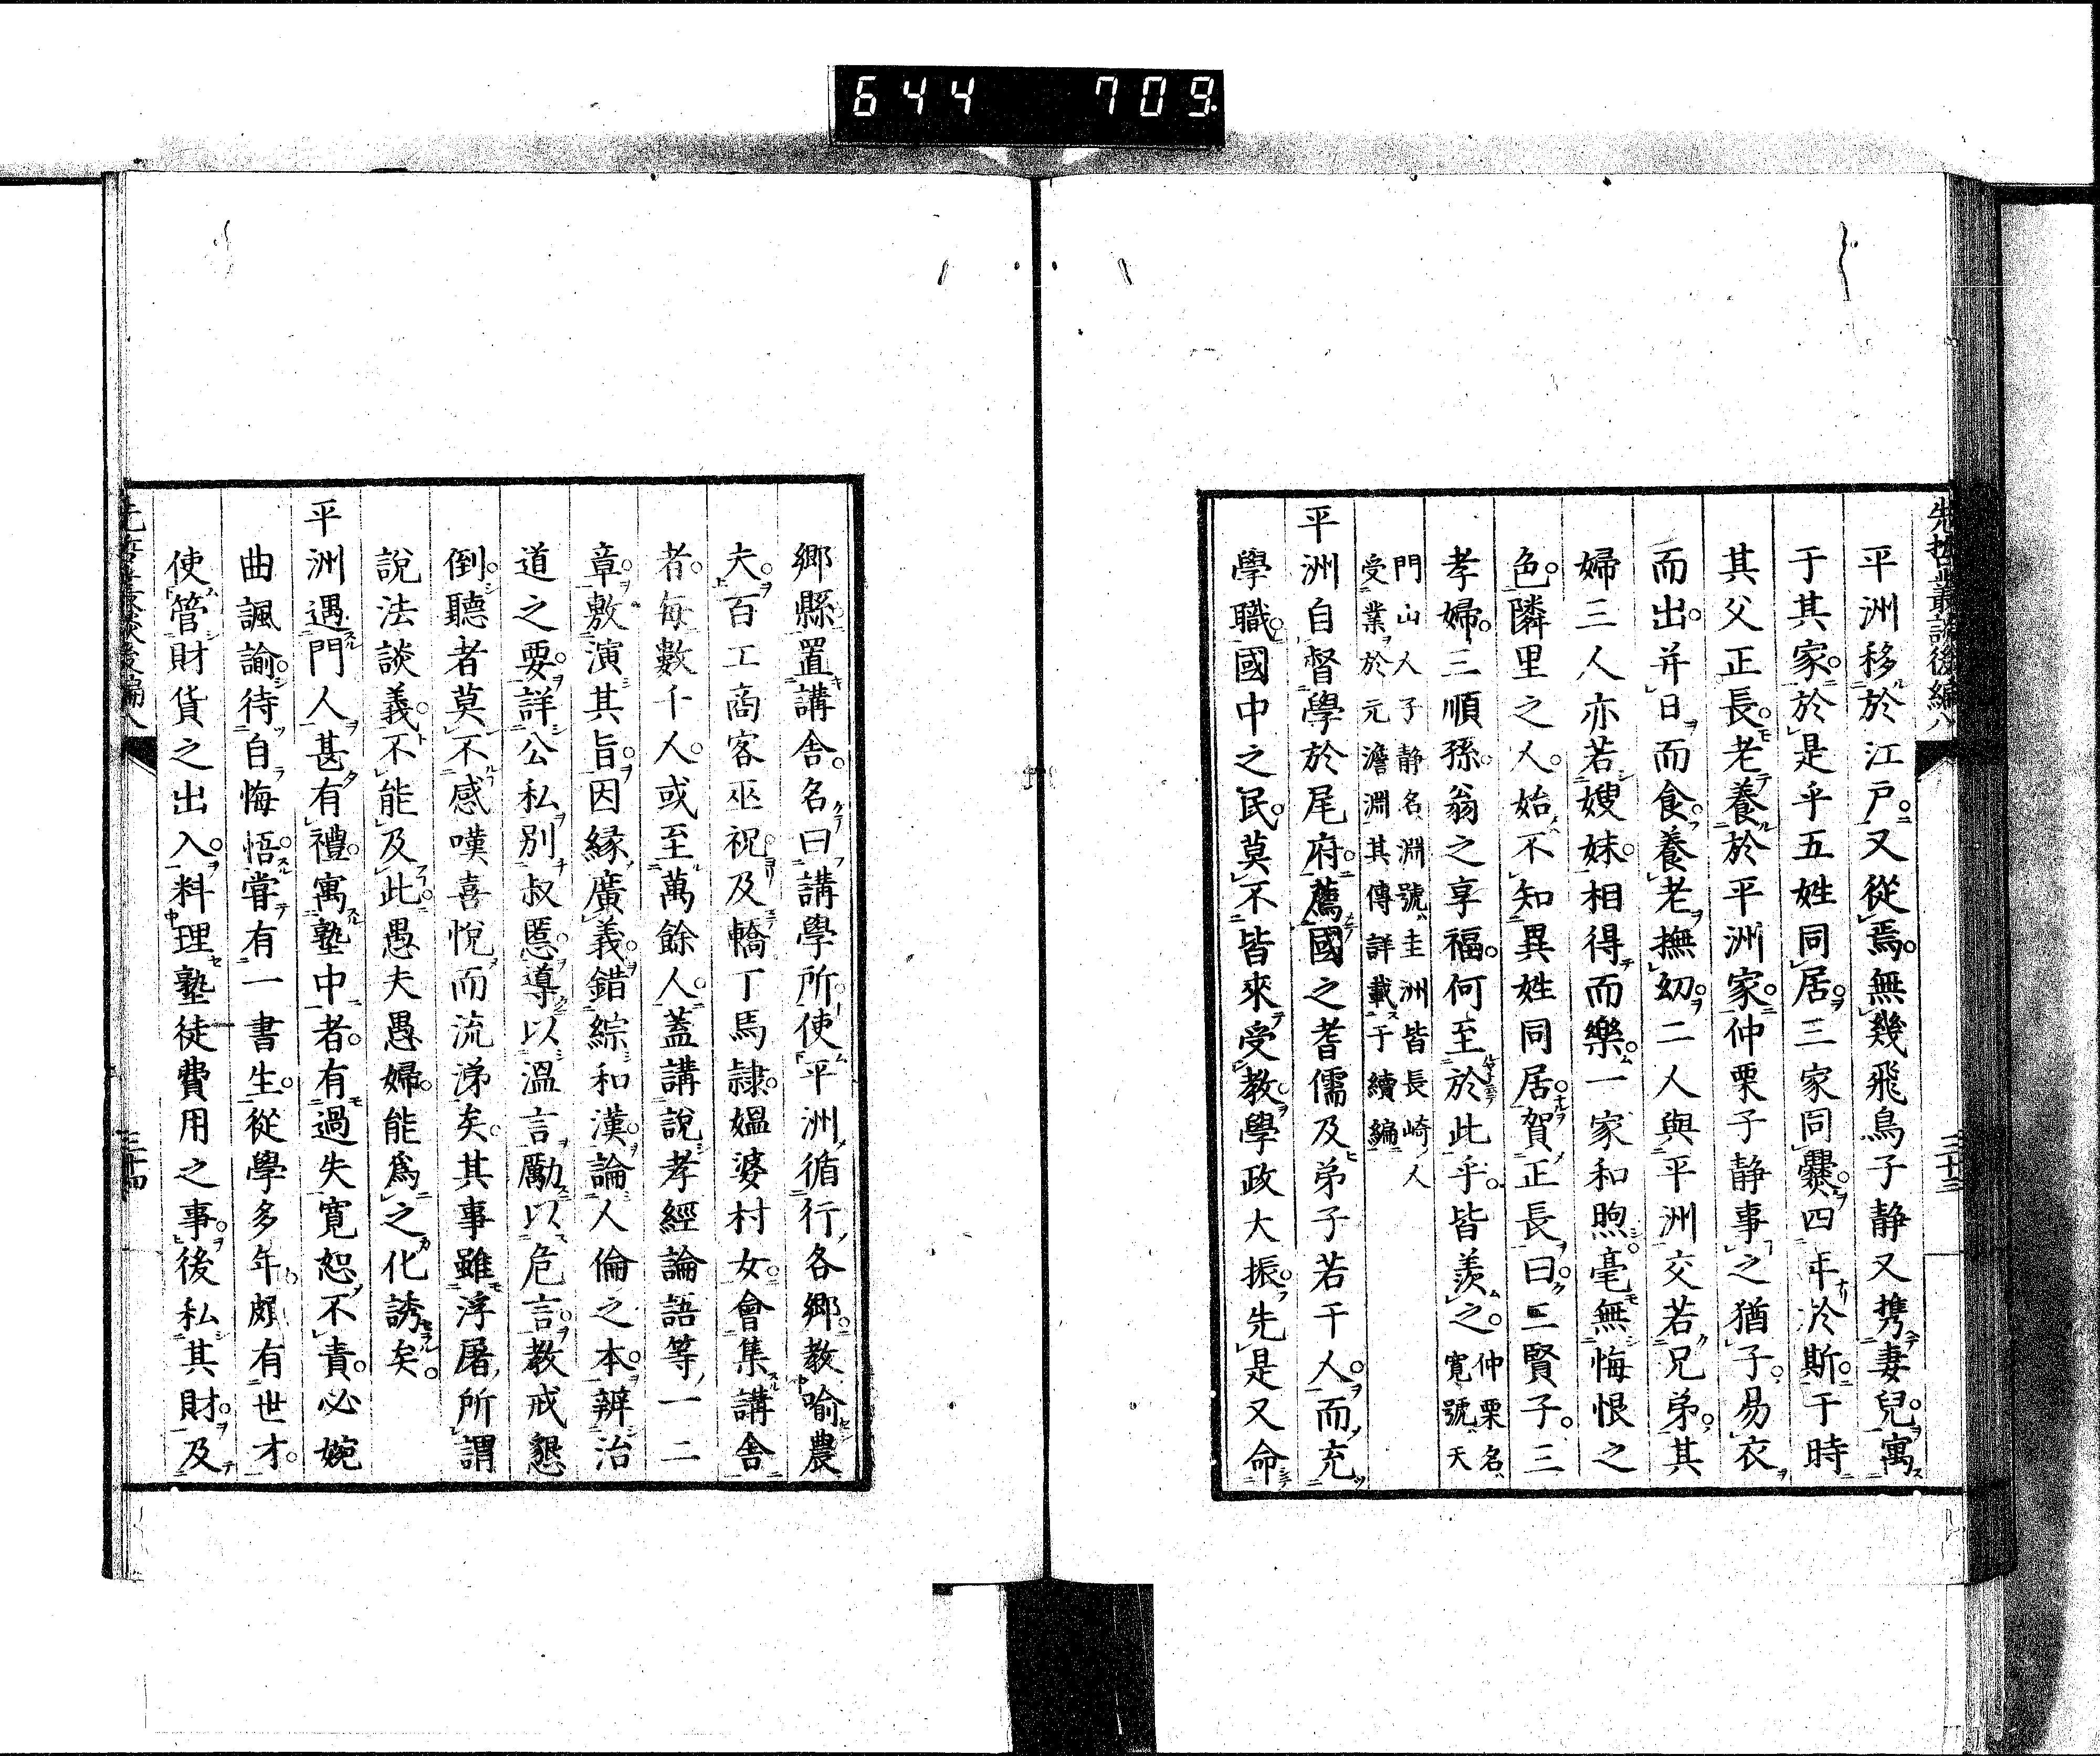 644 709
先哲叢談後編八
三十三
平洲移於江戸又從焉無幾飛鳥子静又携妻兒寓
于其家於是乎五姓同居三家同爨四年於斯于時
其父正長老養於平洲家仲栗子静事之猶子易衣
而出并日而食養老撫幼二人與平洲交若兄弟其
婦三人亦若嫂妹相得而樂一家和煦毫無悔恨之
色隣里之人始不知異姓同居賀正長曰三賢子三
孝婦三順孫翁之享福何至於此乎皆羨之仲栗名寛號天
門山人子静名淵號圭洲皆長崎人
受業於元澹淵其傳詳載于續編
平洲自督學於尾府薦國之耆儒及弟子若干人而充
學職國中之民莫不皆來受教學政大振先是又命
郷縣置講舎名曰講學所使平洲循行各郷教喻農
夫百工商客巫祝及轎丁馬隷媼婆村女會集講舎
者毎數千人或至萬餘人蓋講説孝經論語等一二
章敷演其旨因縁廣義錯綜和漢論人倫之本辨治
道之要詳公私別叔慝導以溫言勵以危言教戒懇
倒聽者莫不感嘆喜悅而流涕矣其事雖浮屠所謂
說法談義不能及此愚夫愚婦能爲之化誘矣
平洲遇門人甚有禮寓塾中者有過失寛恕不責必婉
曲諷諭待自悔悟嘗有一書生從學多年頗有世才
使管財貨之出入料理塾徒費用之事後私其財及
三十四